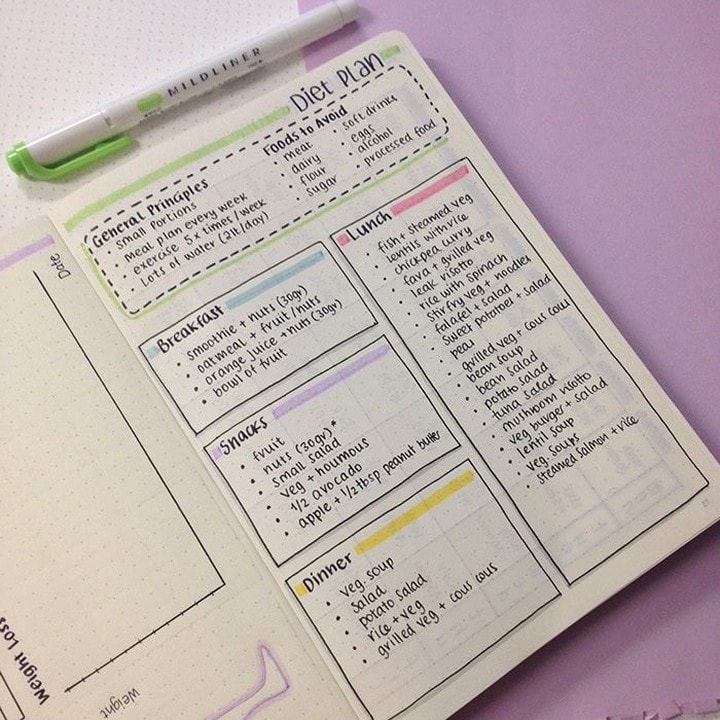 MILDLINER
Diet Plan
General Principles
• small portions
• meal plan every week
• exercise 5x times/week
• Lots of water (2lt/day)
Foods to Avoid
• meat
• dairy
• flour
• sugar
• soft drinks
• eggs
• alcohol
• processed food
Breakfast
• smoothie + nuts (30gr)
• oatmeal + fruit/nuts
• orange juice + nut (30gr)
• bowl of fruit
Snacks
• fruit
• nuts (30gr)*
• small salad
• veg + houmous
• 1/2 avocado
• apple + 1/2 tbsp peanut butter
Dinner
• veg. soup
• salad
• potato salad
• rice + veg
• grilled veg + cous cous
Lunch
• fish + steamed veg
• lentils with rice
• chickpea curry
• fava + grilled veg
• leak risotto
• rice with spinach
• stir fry veg + noodles
• falafel + salad
• sweet potatoes + salad
• peas
• grilled veg + cous cous
• bean soup
• bean salad
• potato salad
• tuna salad
• mushroom risotto
• veg burger + salad
• lentil soup
• veg. soups
• steamed salmon + rice
Date
Weight Loss
Weight